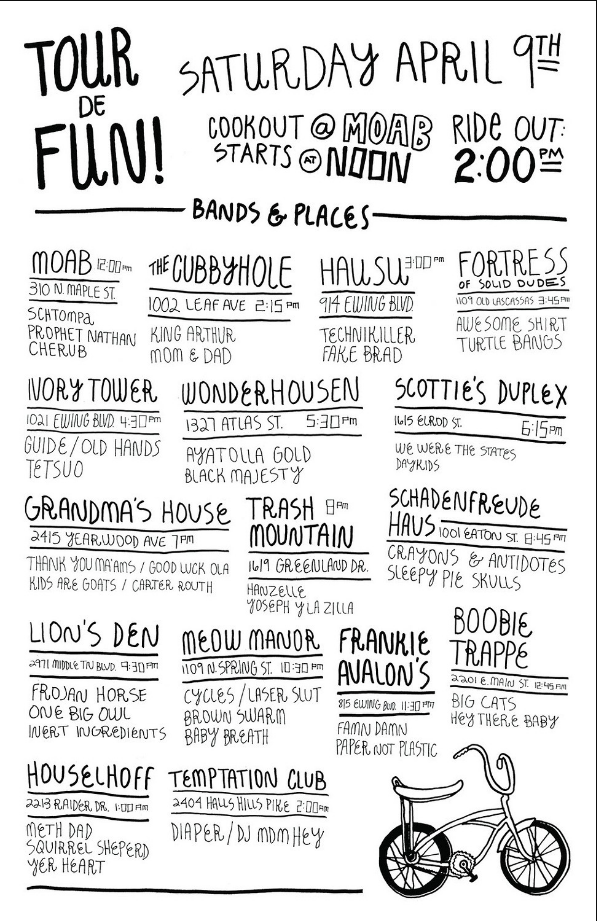 TOUR
DE
FUN!
SATURDAY APRIL 9TH
COOKOUT @ MOAB
STARTS AT NOON
RIDE OUT:
2:00PM
BANDS & PLACES
MOAB 12:00PM
310 N. MAPLE ST.
SCHTOMPA
PROPHET NATHAN
CHERUB
THE CUBBYHOLE
1002 LEAF AVE 2:15PM
KING ARTHUR
MOM & DAD
HAUSU 3:00PM
914 EWING BLVD
TECHNIKILLER
FAKE BRAD
FORTRESS
OF SOLID DUDES
1109 OLD LASCASSAS 3:45PM
AWESOME SHIRT
TURTLE BANGS
IVORY TOWER
1021 EWING BLVD. 4:30PM
GUIDE / OLD HANDS
TETSUO
WONDERHOUSEN
1327 ATLAS ST. 5:30PM
AYATOLLA GOLD
BLACK MAJESTY
SCOTTIE'S DUPLEX
1615 ELROD ST. 6:15PM
WE WERE THE STATES
DAYKIDS
GRANDMA'S HOUSE
2415 YEARWOOD AVE 7PM
THANK YOU MA'AMS / GOOD LUCK OLA
KIDS ARE GOATS / CARTER ROUTH
TRASH 8PM
MOUNTAIN
1619 GREENLAND DR.
HANZELLE
YOSEPH Y LA ZILLA
SCHADENFREUDE
HAUS 1001 EATON ST. 8:45PM
CRAYONS & ANTIDOTES
SLEEPY PIE SKULLS
LION'S DEN
2971 MIDDLE TN BLVD. 9:30PM
FROJAN HORSE
ONE BIG OWL
INERT INGREDIENTS
MEOW MANOR
1109 N. SPRING ST. 10:30PM
CYCLES / LASER SLUT
BROWN SWARM
BABY BREATH
FRANKIE
AVALON'S
815 EWING BLVD. 11:30PM
FAMN DAMN
PAPER NOT PLASTIC
BOOBIE
TRAPPE
2201 E. MAIN ST. 12:45AM
BIG CATS
HEY THERE BABY
HOUSELHOFF
2213 RAIDER DR. 1:00AM
METH DAD
SQUIRREL SHEPERD
YER HEART
TEMPTATION CLUB
2404 HALLS HILLS PIKE 2:00AM
DIAPER / DJ MDMHEY